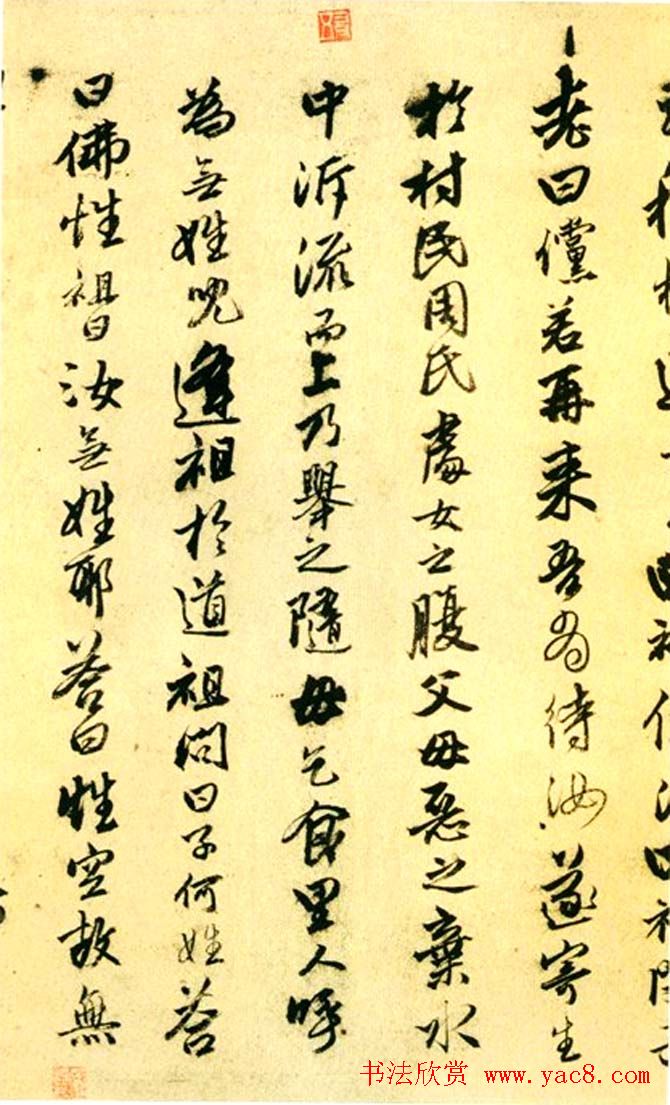 老曰儻若再来吾為待汝遂寄生
於村民周氏處女之腹父母惡之棄水
中泝流而上乃舉之隨母乞食里人呼
為无姓兒逢祖於道祖問曰子何姓荅
曰佛性祖曰汝无姓耶荅曰性空故無
书法欣赏 www.yac8.com